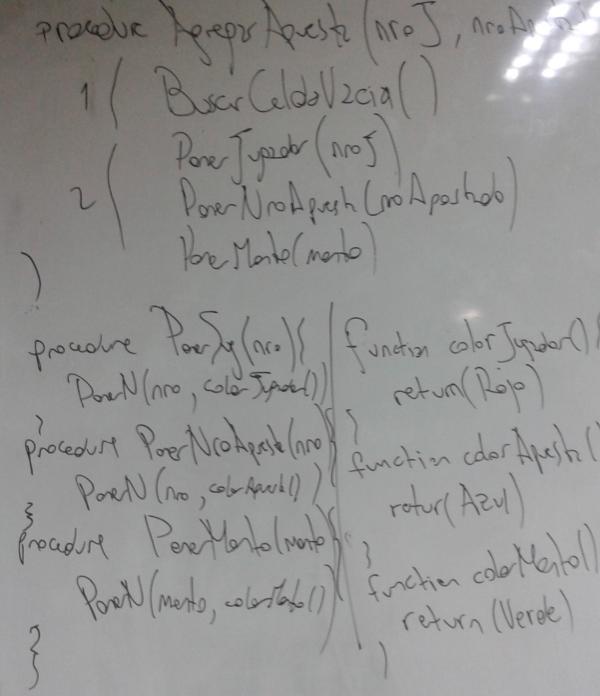 procedure AgregarApuesta(nroJ, nroA
1 ( BuscarCeldaVacia()
PonerJugador(nroJ)
2 ( PonerNroApuesta(nroApostado)
PonerMonto(monto)
}
procedure PonerJug(nro){
PonerN(nro, colorJugador())
}
procedure PonerNroApuesta(nro){
PonerN(nro, colorApuesta())
}
procedure PonerMonto(monto){
PonerN(monto, colorMonto())
}
}
function colorJugador(){
return(Rojo)
}
function colorApuesta(
retur(Azul)
}
function colorMonto()
return(Verde)
}